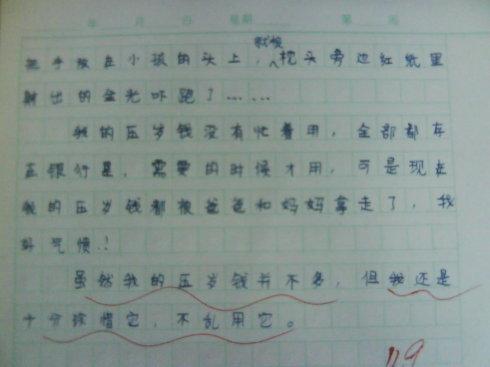 年 月 日 星期 第 页
就被
把手放在小孩的头上，枕头旁边红纸里
射出的金光吓跑了……
我的压岁钱没有忙着用，全部都存
在银行里，需要的时候才用，可是现在
我的压岁钱都被爸爸和妈妈拿走了，我
好气愤！
虽然我的压岁钱并不多，但我还是
十分珍惜它，不乱用它。